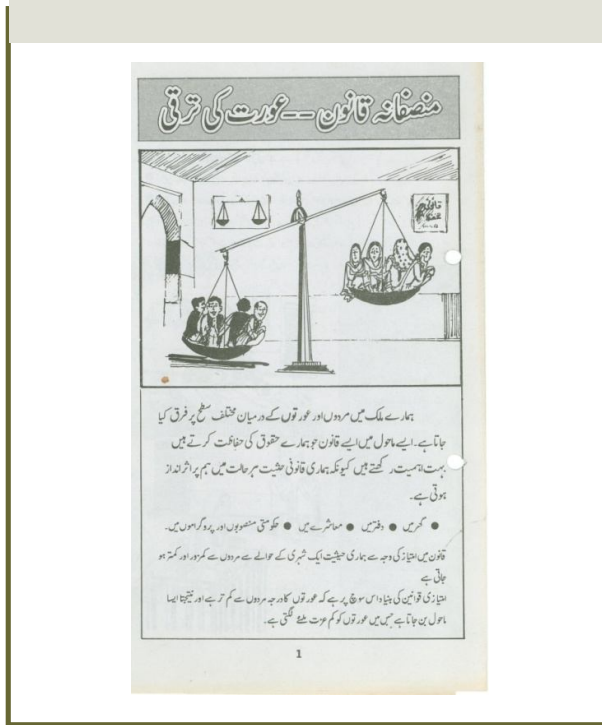 منصفانہ قانون -- عورت کی ترقی
ہمارے ملک میں مردوں اور عورتوں کے درمیان مختلف سطح پر فرق کیا
جاتا ہے۔ ایسے ماحول میں ایسے قانون جو ہمارے حقوق کی حفاظت کرتے ہیں
بہت اہمیت رکھتے ہیں کیونکہ ہماری قانونی حثیت ہر حالت میں ہم پر اثر انداز
ہوتی ہے۔
● گھر میں ● دفتر میں ● معاشرے میں ● حکومتی منصوبوں اور پروگراموں میں۔
قانون میں امتیاز کی وجہ سے ہماری حیثیت ایک شہری کے حوالے سے مردوں سے کمزور اور کمتر ہو
جاتی ہے
امتیازی قوانین کی بنیاد اس سوچ پر ہے کہ عورتوں کا درجہ مردوں سے کم تر ہے اور نتیجتا ایسا
ماحول بن جاتا ہے جس میں عورتوں کو کم عزت ملنے لگتی ہے۔
1